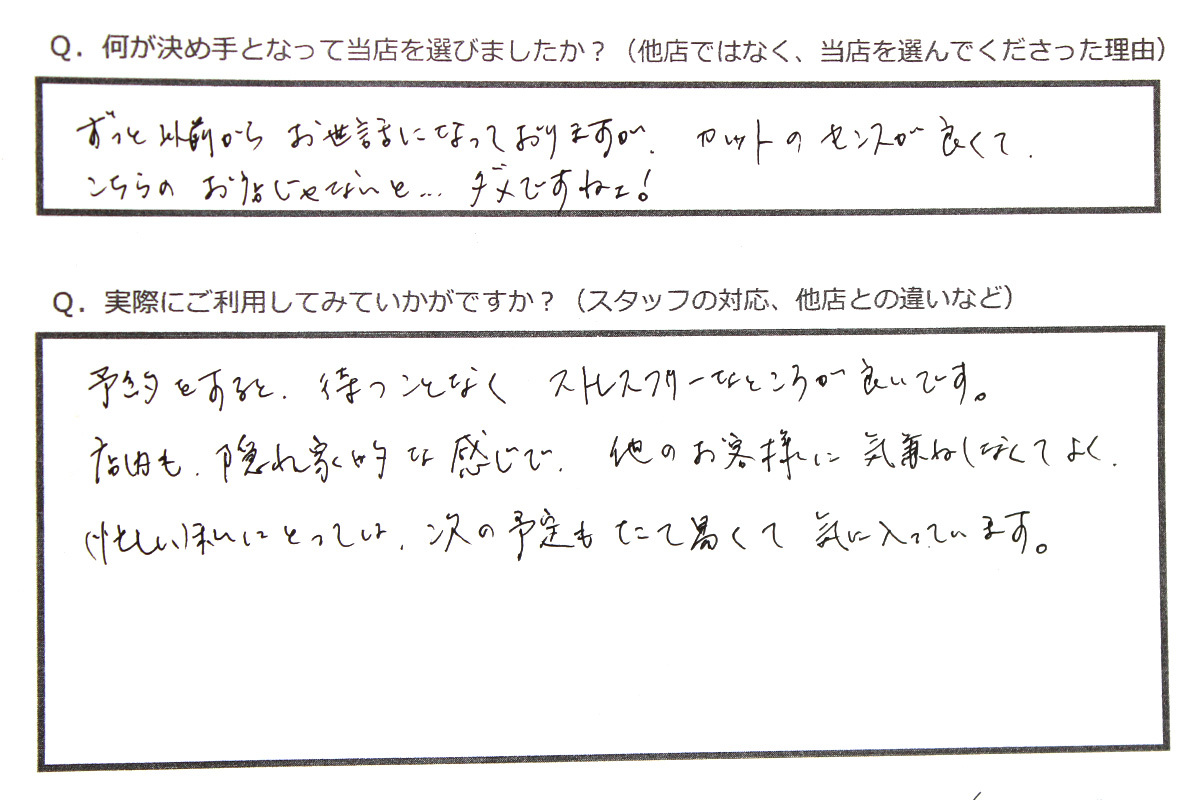 Q. 何が決め手となって当店を選びましたか？（他店ではなく、当店を選んでくださった理由）
ずっと以前から お世話になっておりますが、カットのセンスが良くて、
こちらの お店じゃないと… ダメですねェ!
Q. 実際にご利用してみていかがですか？（スタッフの対応、他店との違いなど）
予約をすると、待つことなく ストレスフリーなところが良いです。
店内も、隠れ家的な感じで、他のお客様に 気兼ねしなくてよく、
(忙しい)私にとっては、次の予定もたて易くて 気に入っています。